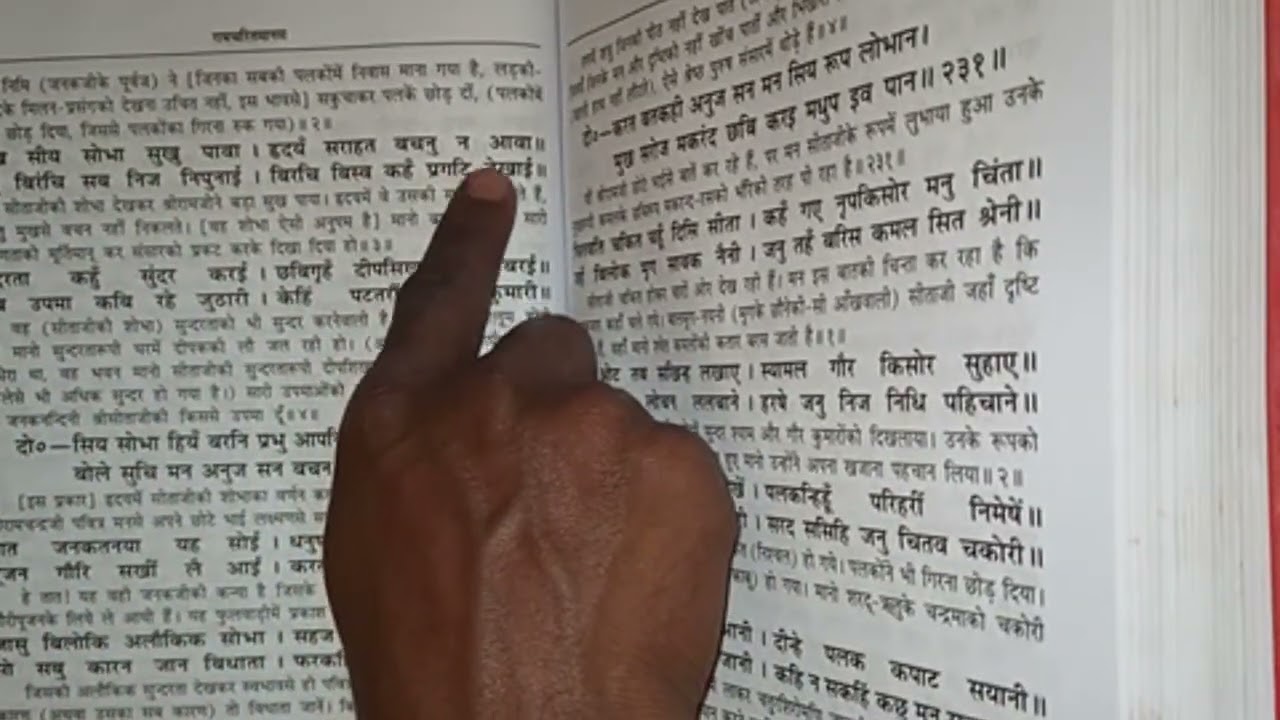 रामचरितमानस
निमि (जनकजीके पूर्वज) ने [जिनका सबकी पलकोंमें निवास माना गया है, लड़की-
के मिलन-प्रसंगको देखना उचित नहीं, इस भावसे] सकुचाकर पलकें छोड़ दीं, (पलकोंमें
छोड़ दिया, जिससे पलकोंका गिरना रुक गया)॥२॥
सीय सोभा सुखु पावा। हृदयँ सराहत बचनु न आवा॥
बिरंचि सब निज निपुनाई। बिरचि बिस्व कहँ प्रगटि देखाई॥
सीताजीकी शोभा देखकर श्रीरामजीने बड़ा सुख पाया। हृदयमें वे उसकी
मुखसे वचन नहीं निकलते। [वह शोभा ऐसी अनुपम है] मानो
को मूर्तिमान् कर संसारको प्रकट करके दिखा दिया हो॥३॥
कहुँ सुंदर करई। छबिगृहँ दीपसि बरई॥
उपमा कबि रहे जुठारी। केहिं पटत कुमारी॥
वह (सीताजीकी शोभा) सुन्दरताको भी सुन्दर करनेवाली है
मानो सुन्दरतारूपी घरमें दीपककी लौ जल रही हो।
था, वह भवन मानो सीताजीकी सुन्दरतारूपी
भी अधिक सुन्दर हो गया है।) सारी उपमाओंको
जनकनन्दिनी श्रीसीताजीकी किससे उपमा दूँ॥४॥
दो०—सिय सोभा हियँ बरनि प्रभु आपनि
बोले सुचि मन अनुज सन बचन
[इस प्रकार] हृदयमें सीताजीकी शोभाका वर्णन
पवित्र मनसे अपने छोटे भाई लक्ष्मणसे
जनकतनया यह सोई। धनुष
गौरि सखीं लै आईं। करत
हे तात! यह वही जनकजीकी कन्या है जिसके
लिये ले आयी हैं। यह फुलवाड़ीमें प्रकाश
जासु बिलोकि अलौकिक सोभा। सहज
सबु कारन जान बिधाता। फरकहिं
जिसकी अलौकिक सुन्दरता देखकर स्वभावसे ही पवित्र
(अथवा उसका सब कारण) तो विधाता जानें।
दो०—करत बतकही अनुज सन मन सिय रूप लोभान।
मुख सरोज मकरंद छबि करइ मधुप इव पान॥२३१॥
बातें कर रहे हैं, पर मन सीताजीके रूपमें लुभाया हुआ उनके
भौंरेकी तरह पी रहा है॥२३१॥
चितवति चकित चहूँ दिसि सीता। कहँ गए नृपकिसोर मनु चिंता॥
बिलोक मृग सावक नैनी। जनु तहँ बरिस कमल सित श्रेनी॥
चकित होकर चारों ओर देख रही हैं। मन इस बातकी चिन्ता कर रहा है कि
कहाँ चले गये। बालमृग-नयनी (मृगके छौनेकी-सी आँखवाली) सीताजी जहाँ दृष्टि
वहाँ मानो श्वेत कमलोंकी कतार बरस जाती है॥१॥
ओट तब सखिन्ह लखाए। स्यामल गौर किसोर सुहाए॥
ललचाने। हरषे जनु निज निधि पहिचाने॥
श्याम और गौर कुमारोंको दिखलाया। उनके रूपको
मानो उन्होंने अपना खजाना पहचान लिया॥२॥
पलकन्हिहूँ परिहरीं निमेषें॥
सरद ससिहि जनु चितव चकोरी॥
हो गये। पलकोंने भी गिरना छोड़ दिया।
हो गया। मानो शरद्-ऋतुके चन्द्रमाको चकोरी
दीन्हे पलक कपाट सयानी॥
कहि न सकहिं कछु मन